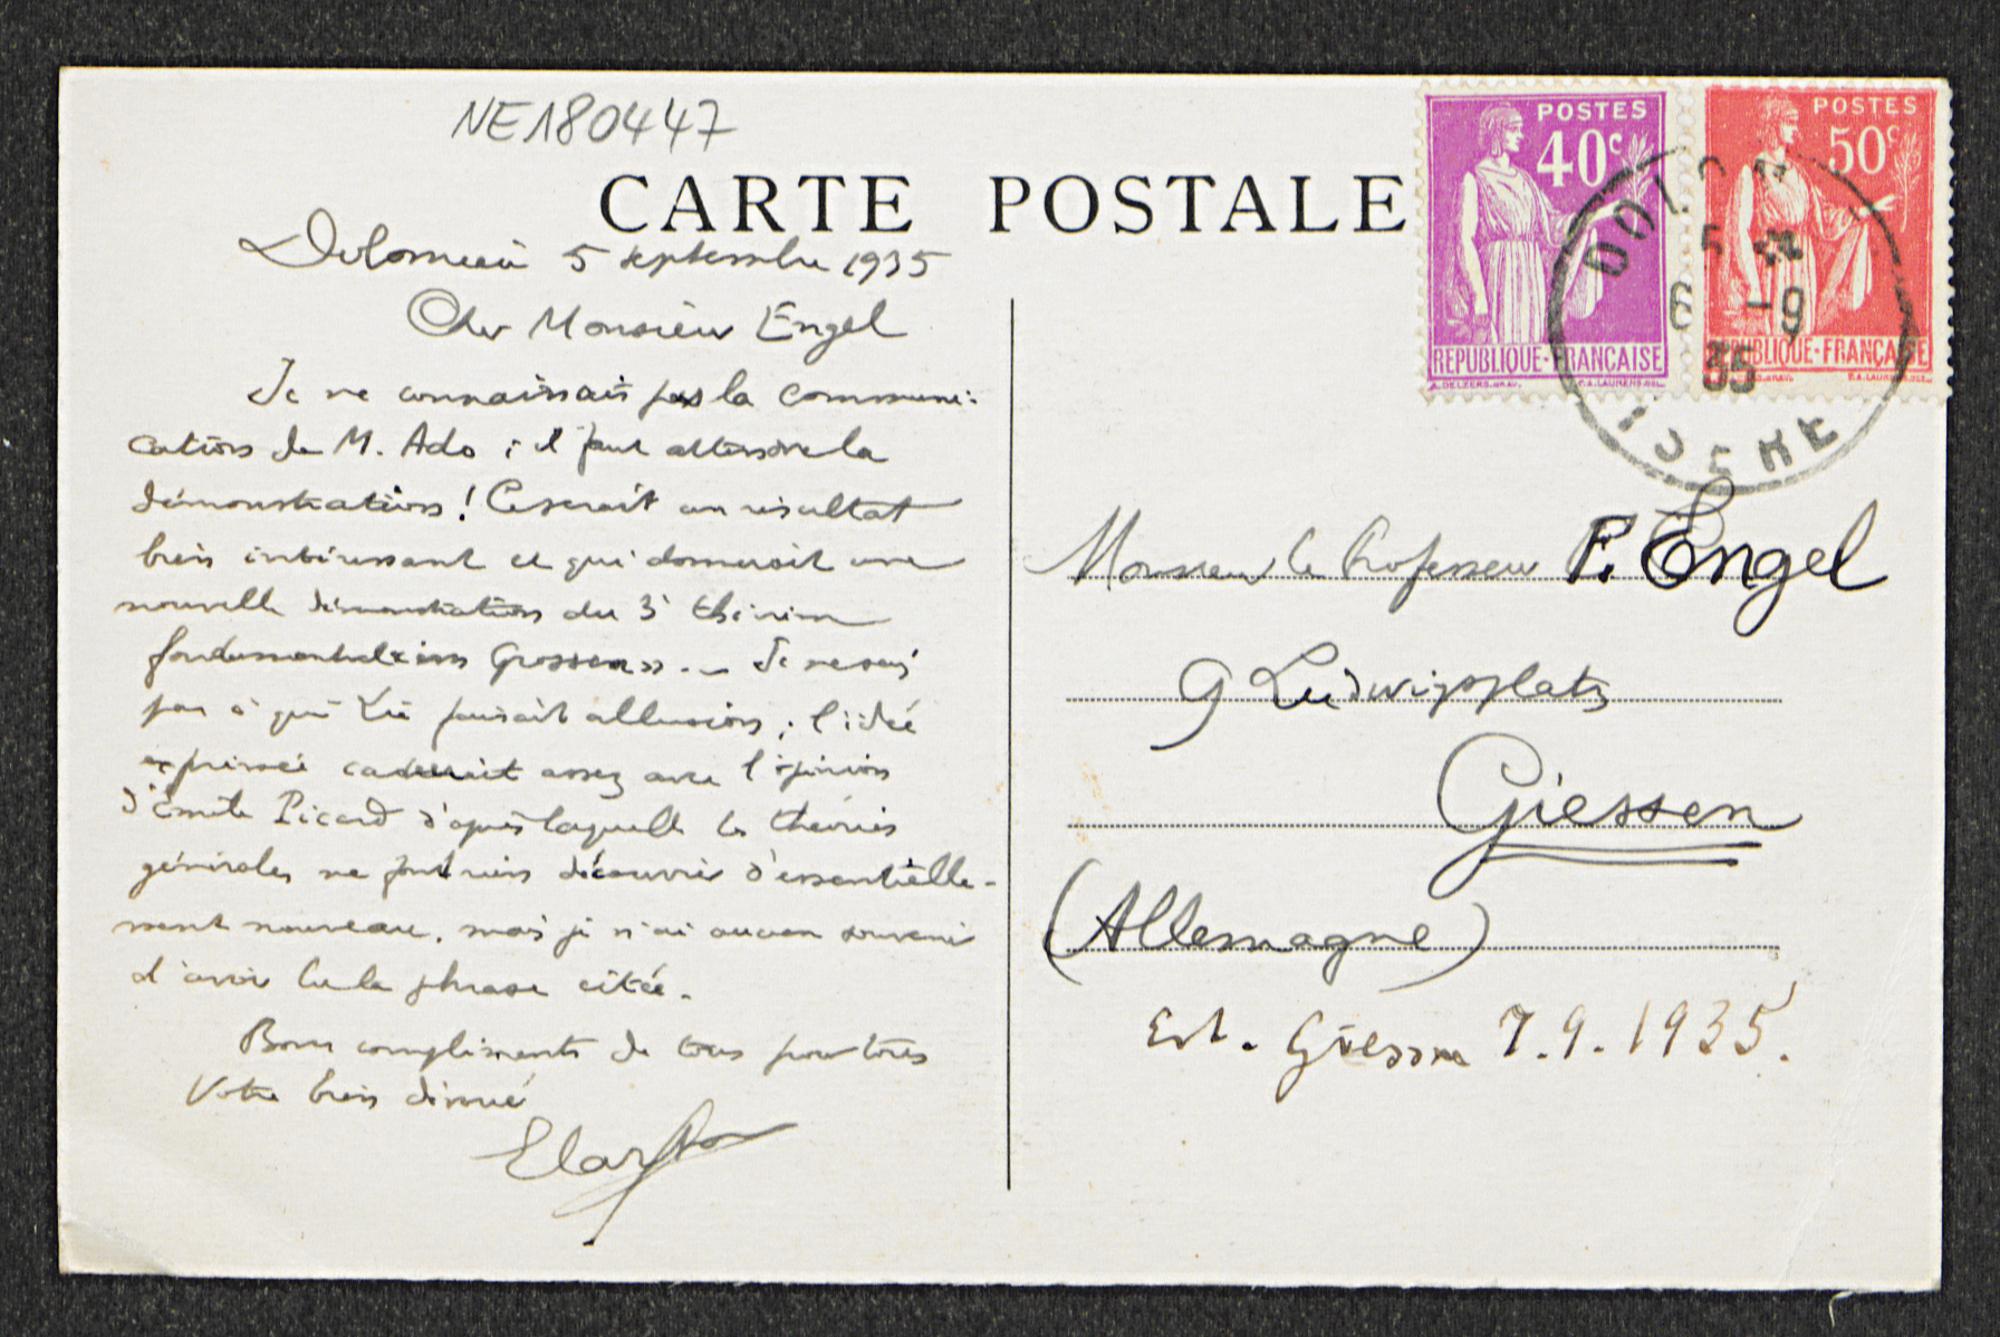 NE180447
CARTE POSTALE
Dolomieu 5 septembre 1935
Cher Monsieur Engel
Je ne connaissais pas la communi-
cation de M. Ado ; il faut attendre la
démonstration ! Ce serait un résultat
bien intéressant et qui donnerait une
nouvelle démonstration du 3e théorème
fondamental im Grossen. — Je ne sais
pas à qui Lie faisait allusion ; l'idée
exprimée cadrerait assez avec l'opinion
d'Emile Picard d'après laquelle les théories
générales ne font rien découvrir d'essentielle-
ment nouveau, mais je n'ai aucun souvenir
d'avoir lu la phrase citée.
Bons compliments de tous pour tous
Votre bien dévoué
E Cartan
POSTES
40c
REPUBLIQUE-FRANÇAISE
POSTES
50c
REPUBLIQUE-FRANÇAISE
6 -9
35
ISERE
Monsieur le Professeur F. Engel
9 Ludwigsplatz
Giessen
(Allemagne)
Erh. Giessen 7.9.1935.